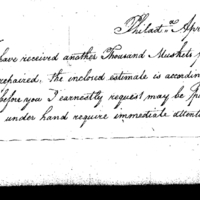 Philad.a Apr
have received another Thousand Muskets
repaired, the inclosd estimate is accordin
before you I earnestly request may be
under hand require immediate attenti